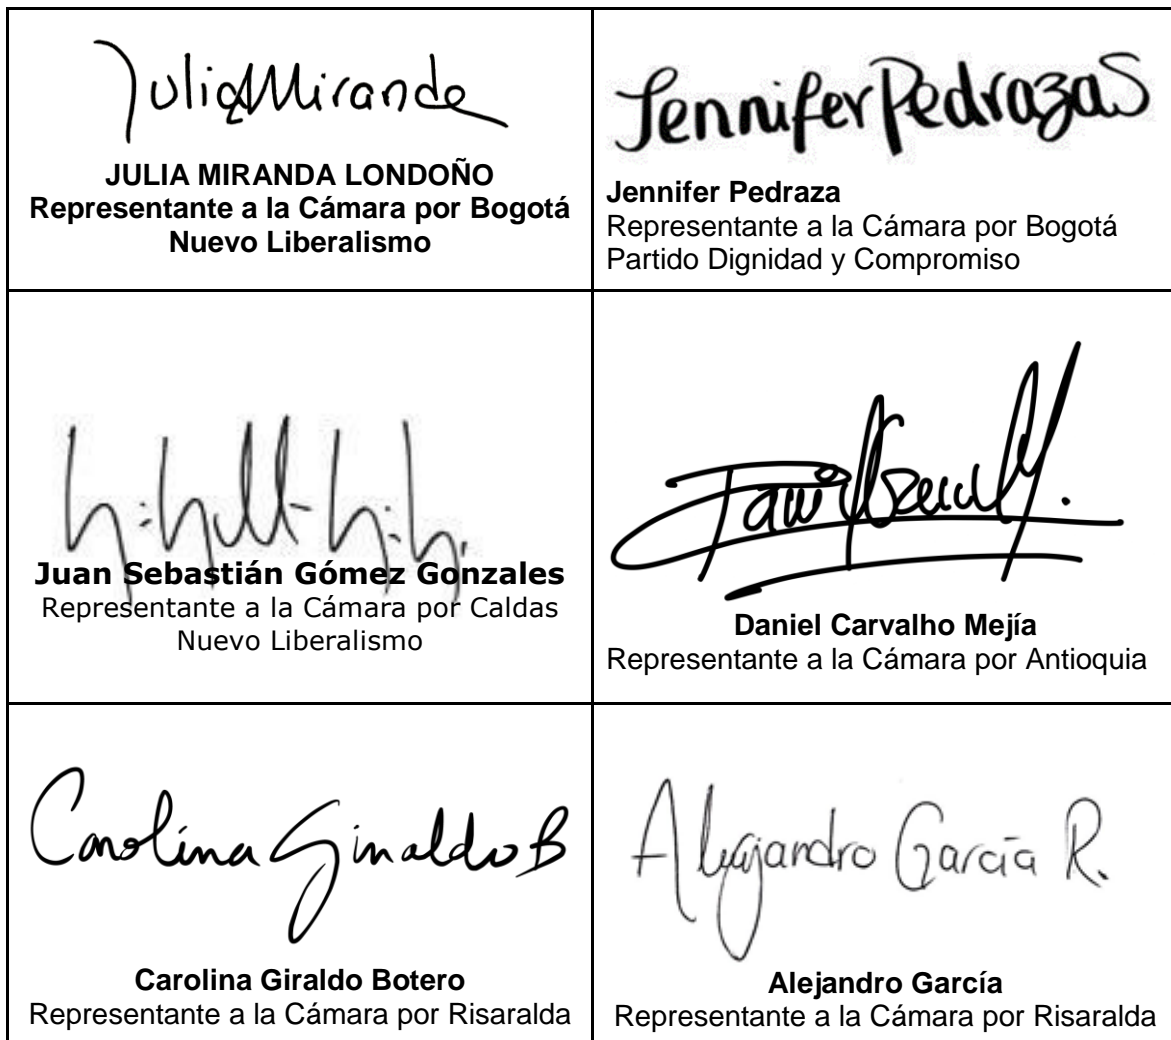 Julia Miranda
JULIA MIRANDA LONDOÑO
Representante a la Cámara por Bogotá
Nuevo Liberalismo
Jennifer Pedraza S
Jennifer Pedraza
Representante a la Cámara por Bogotá
Partido Dignidad y Compromiso
Juan Sebastián Gómez Gonzales
Representante a la Cámara por Caldas
Nuevo Liberalismo
Daniel Carvalho Mejía
Representante a la Cámara por Antioquia
Carolina Giraldo B
Carolina Giraldo Botero
Representante a la Cámara por Risaralda
Alejandro García R.
Alejandro García
Representante a la Cámara por Risaralda